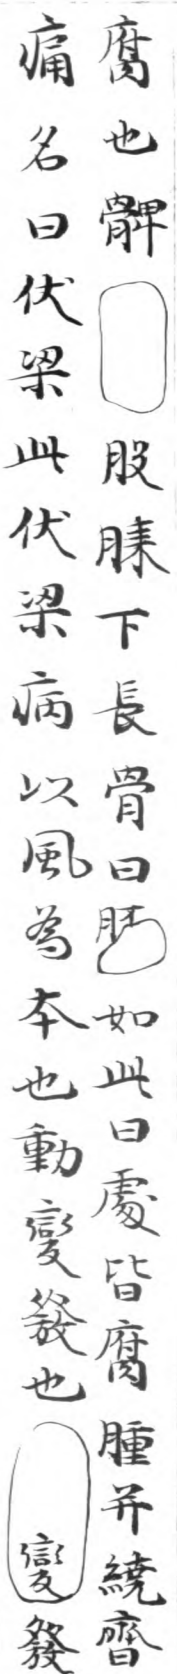 腐也髀股膝下長骨曰胻如此曰處皆腐腫并繞齊
痛名曰伏梁此伏梁病以風為本也動變發也變發